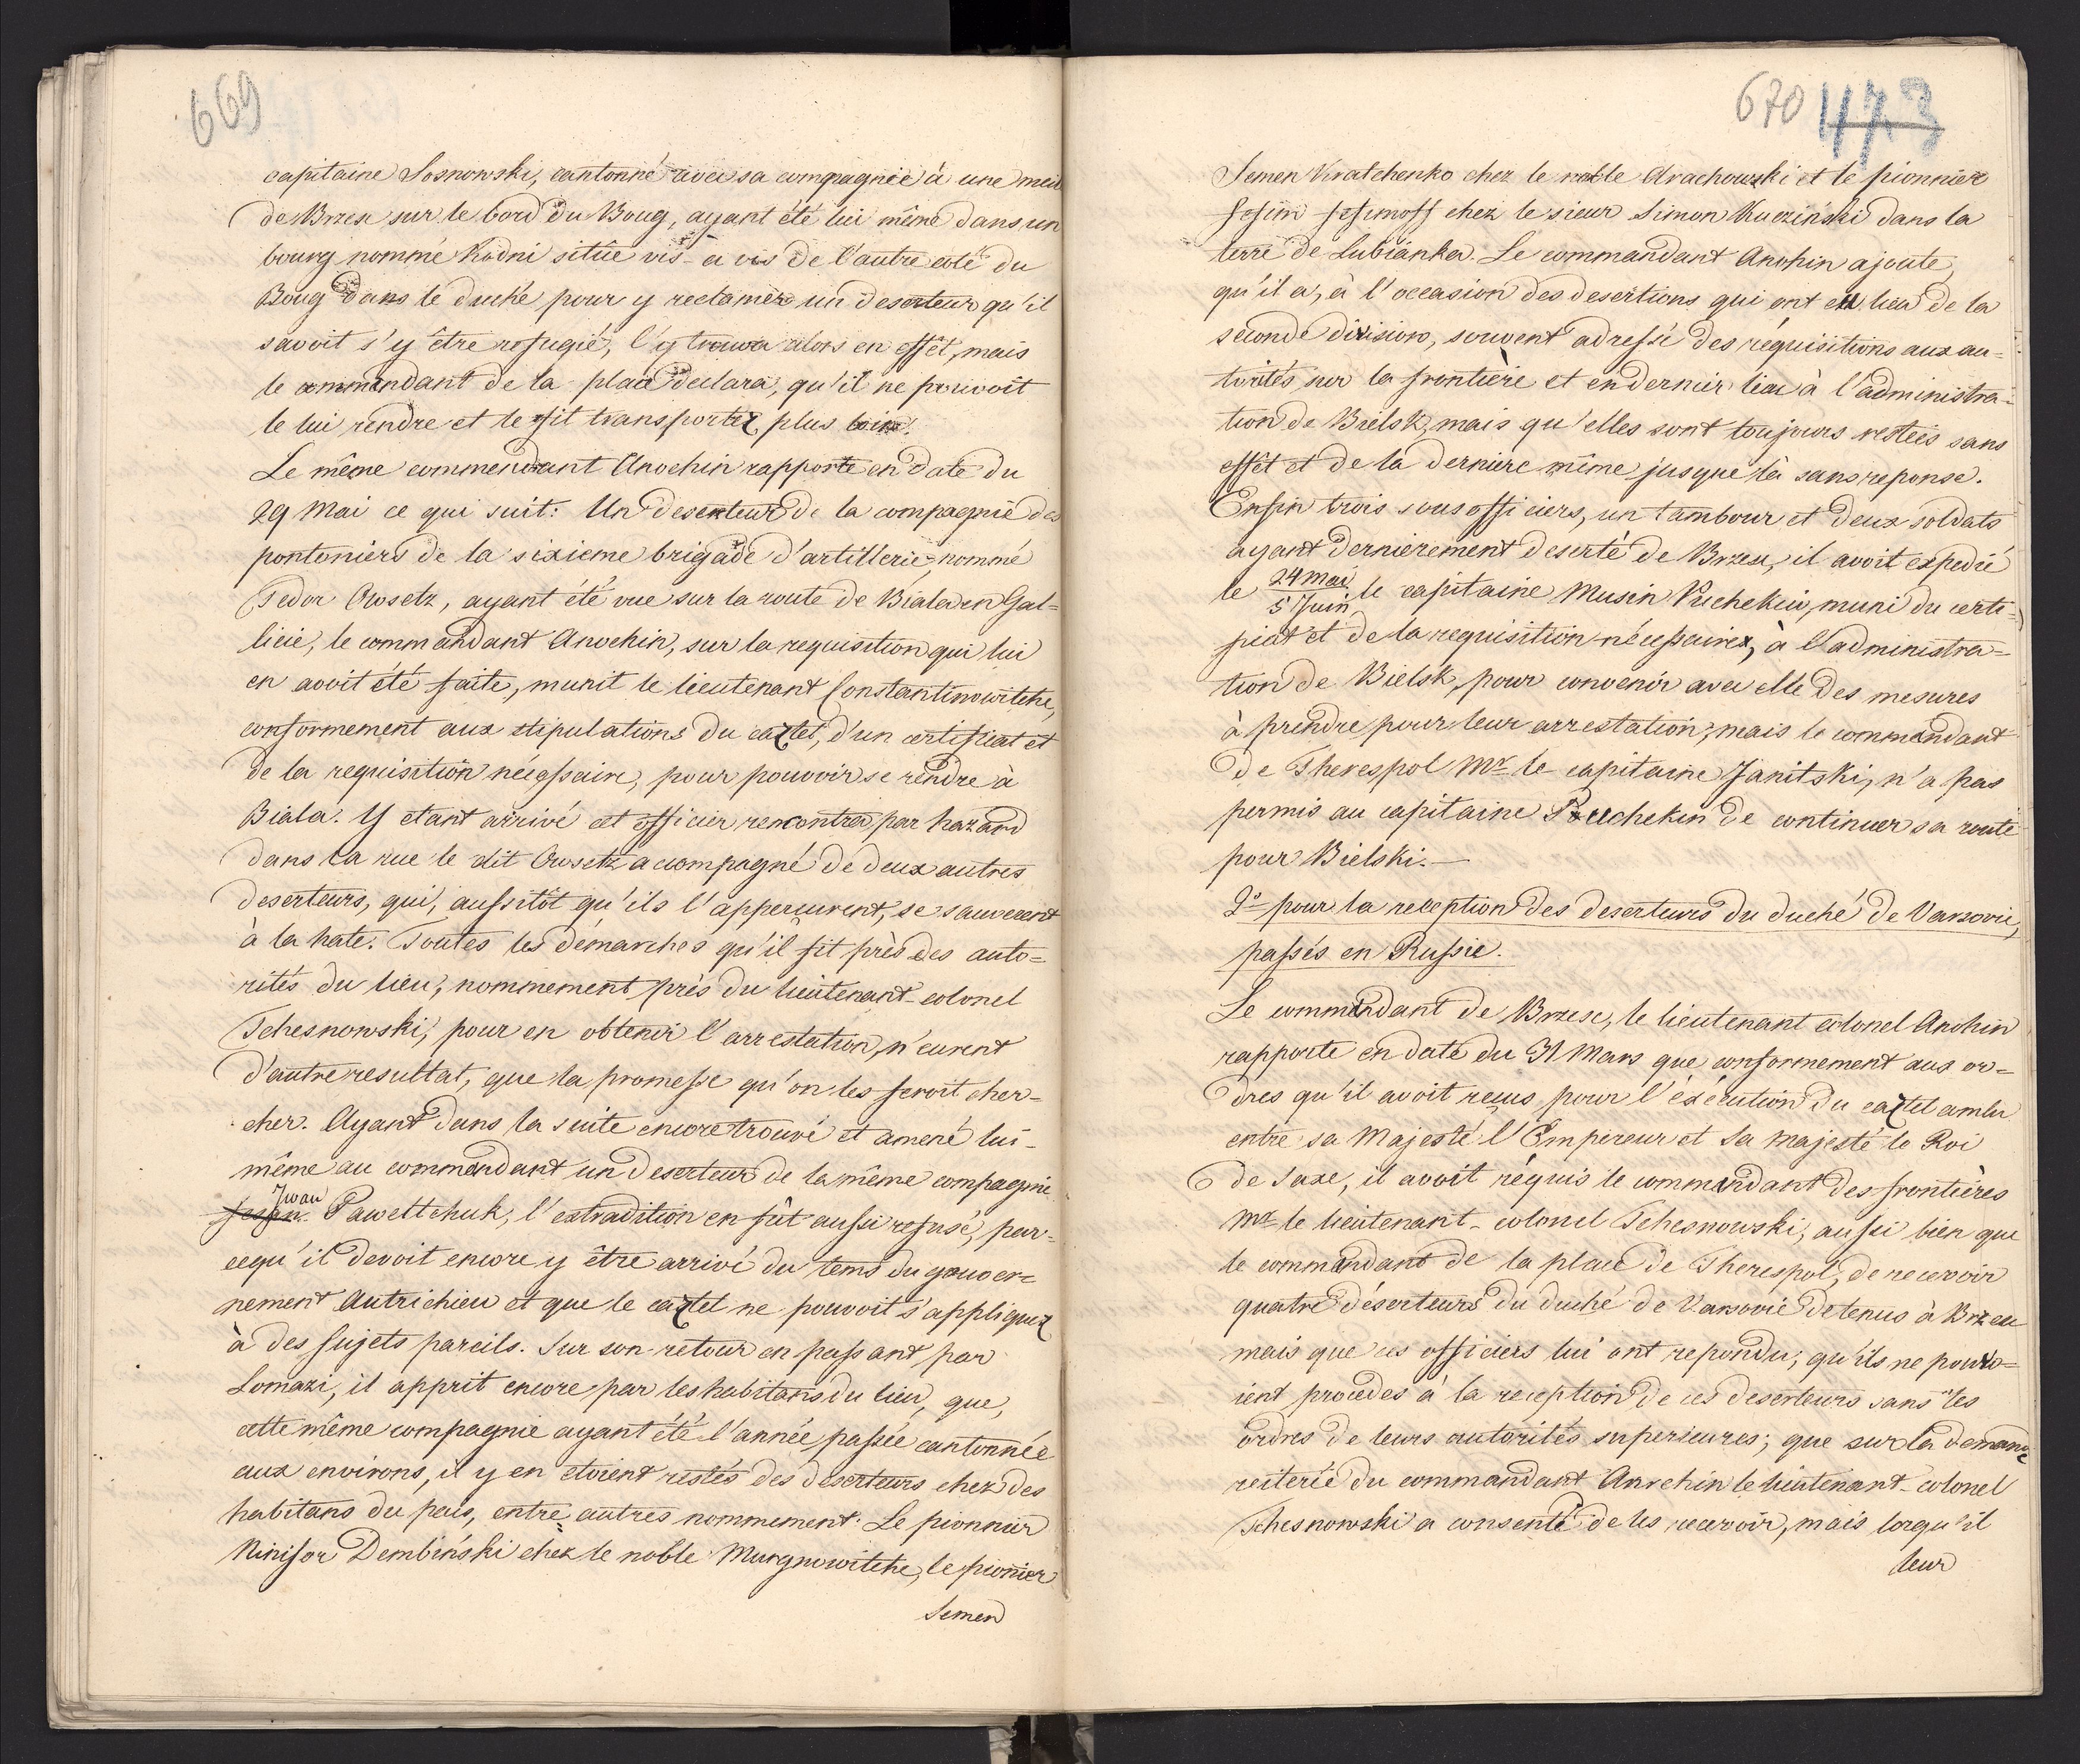 669
capitaine Sosnowski, cantonné avec sa compagnie à une meil
de Brzesc sur le bord du Boug, ayant été lui même dans un
bourg nommé Kodni situe vis-a vis de l'autre coté du
Boug dans le duché pour y reclamer un deserteur qu'il
savoit s'y être refugié, l'y trouva alors en effêt, mais
le commendant de la place declara, qu'il ne pouvoit
le lui rendre et le fit transporter plus loin.
Le même commendant Anochin rapporte en date du
29 Mai ce qui suit: Un deserteur de la compagnie des
pontoniers de la sixieme brigade d'artillerie, nommé
Fedor Owsetz, ayant été vue sur la route de Biala en Gal=
licie, le commendant Anochin, sur la requisition qui lui
en avoit été faite, munit le lieutenant Constantinowitche,
conformement aux stipulations du cartel, d'un certificat et
de la requisition nécessaire, pour pouvoir se rendre à
Biala. Y etant arrivé cet officier rencontra par hazard
dans la rue le dit Owsetz accompagné de deux autres
deserteurs, qui, aussitôt qu'ils l'apperçurent, se sauverent
à la hate. Toutes les démarches qu'il fit près des auto=
rités du lieu, nommement près du lieutenant-colonel
Tchesnowski, pour en obtenir l'arrestation, n'eurent
d'autre resultat, que la promesse qu'on les feroit cher=
cher. Ayant dans la suite encore trouvé et amené lui-
même au commendant un deserteur de la même compagnie
Iwan
Pawettchuk, l'extradition en fût aussi refusé, par=
cequ'il devoit encore y être arrivé du tems du gouver=
nement Autrichien et que le cartel ne pouvoit s'appliquer
à des sujets pareils. Sur son retour en passant par
Lomazi, il apprit encore par les habitans du lieu, que,
cette même compagnie ayant été l'année passée cantonnée
aux environs, il y en etoient restés des deserteurs chez des
habitans du païs, entre autres nommement: Le pionnier
Nikifor Dembiński chez le noble Murgnowitche, le pionier
Semen
670 473
Semen Kwatchenko chez le noble Arachowski et le pionnier
Jefim Jefimoff chez le sieur Simon Kuziński dans la
terre de Lubianka. Le commandant Anohin ajoute,
qu'il a, à l'occasion des desertions qui ont eu lieu de la
seconde division, souvent adressé des réquisitions aux au=
torités sur la frontière et en dernier lieu à l'administra=
tion de Bielsk, mais qu'elles sont toujours restées sans
effêt et de la derniere même jusque là sans reponse.
Enfin trois sousofficiers, un tambour et deux soldats
ayant dernierement deserté de Brzesc, il avoit expedié
le 24 Mai / 5 Juin le capitaine Musin Puchekin, muni du certi=
ficat et de la requisition nécessaires, à l'administra=
tion de Bielsk, pour convenir avec elle des mesures
à prendre pour leur arrestation, mais le commendant
de Therespol Mr le capitaine Janitski, n'a pas
permis au capitaine Pouchekin de continuer sa route
pour Bielski.—
2° pour la reception des deserteurs du duché de Varsovie,
passés en Russie.
Le commendant de Brzesc, le lieutenant colonel Anohin
rapporte en date du 31 Mars que conformement aux or=
dres qu'il avoit reçus pour l'éxécution du cartel conclu
entre sa Majesté l'Empereur et Sa Majesté le Roi
de Saxe, il avoit réquis le commendant des frontières
Mr le lieutenant-colonel Tchesnowski, aussi bien que
le commendant de la place de Therespol, de recevoir
quatre déserteurs du duché de Varsovie detenus à Brzesc
mais que ces officiers lui ont repondu, qu'ils ne pouvo=
ient procedes à la reception de ces deserteurs sans les
ordres de leurs autorités superieures; que sur la demande
reiterée du commandant Anochin le lieutenant-colonel
Tchesnowski a consenti de les recevoir, mais lorqu'il
leur